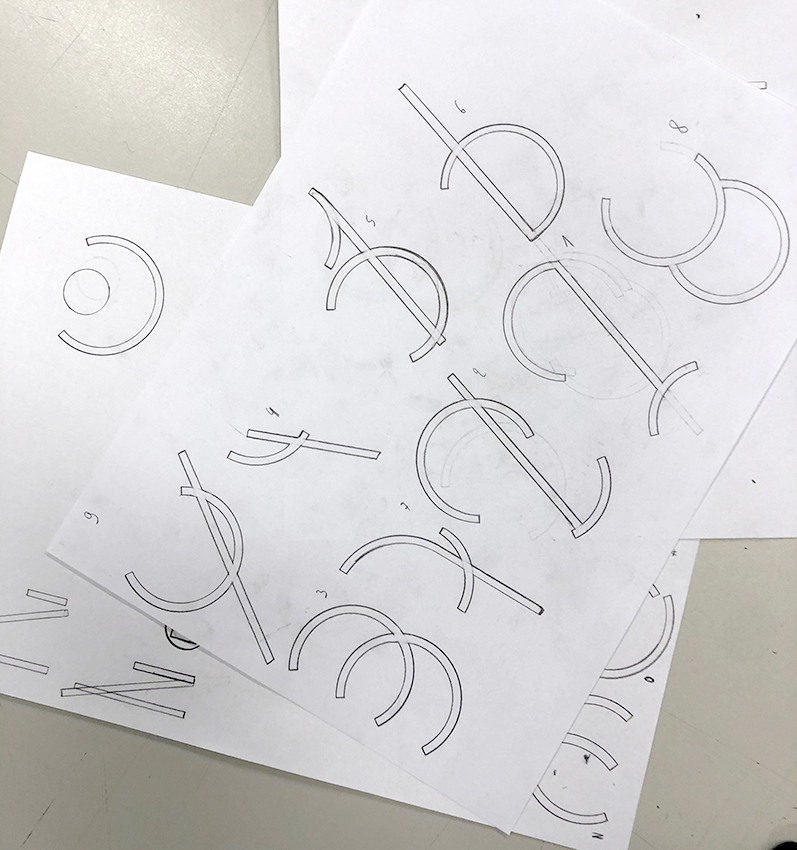 6
8
5
1
2
4
7
9
3
0